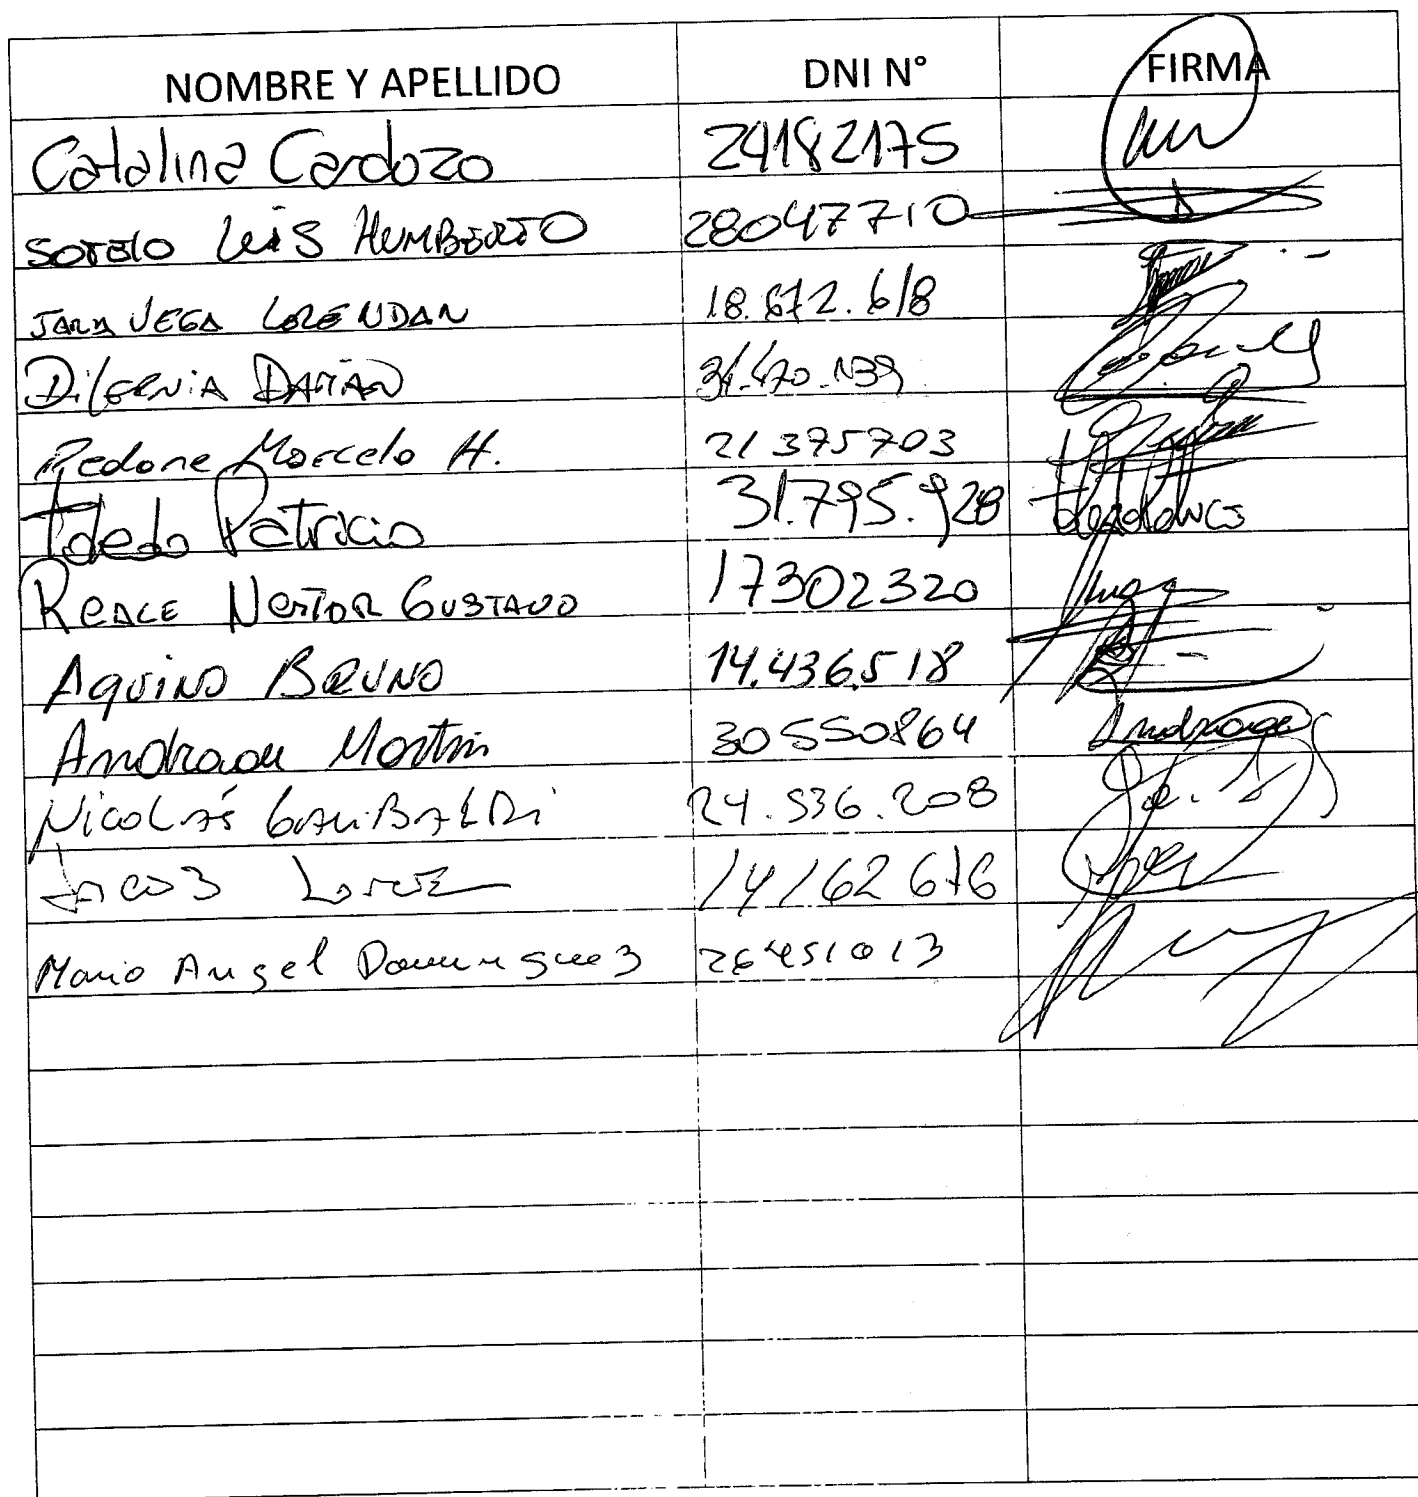 NOMBRE Y APELLIDO DNI N° FIRMA
Catalina Cardozo 24182175
SOTELO LUIS HUMBERTO 28047710
JARA VEGA LORENDAN 18.672.618
DilERNiA DAMIAN 31.470.139
Pedone Marcelo H. 21375703
Toledo Patricio 31.795.928
REALE NESTOR GUSTAVO 17302320
AQUINO BRUNO 14.436.518
Andrade Martin 30550864 Andrade
NICOLÁS GARIBALDI 24.536.208
14162676
Mario Angel Dominguez 26451013